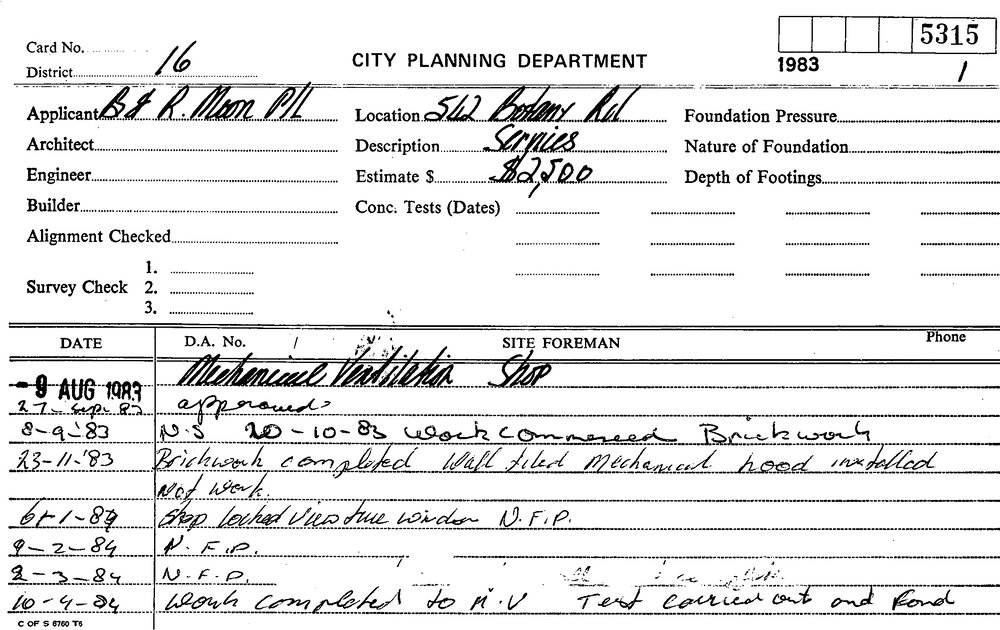 5315
Card No.
District 16
CITY PLANNING DEPARTMENT
1983
1
Applicant B & R. Moon P/L
Location 542 Botany Rd
Foundation Pressure
Architect
Description Services
Nature of Foundation
Engineer
Estimate $ $2,500
Depth of Footings
Builder
Conc. Tests (Dates)
Alignment Checked
1.
Survey Check 2.
3.
DATE D.A. No. / SITE FOREMAN Phone
Mechanical Ventilation Shop
-9 AUG 1983
27-Sept. 83 approved
8-9-'83 N.S 20-10-83 work commenced Brickwork
23-11-'83 Brickwork completed Wall tiled Mechanical hood installed
Not work.
6-1-84 Shop locked view window N.F.P.
9-2-84 N.F.P.
2-3-84 N.F.P.
10-4-84 Work completed to M.V Test carried out and Fond
C OF S 6760 T6